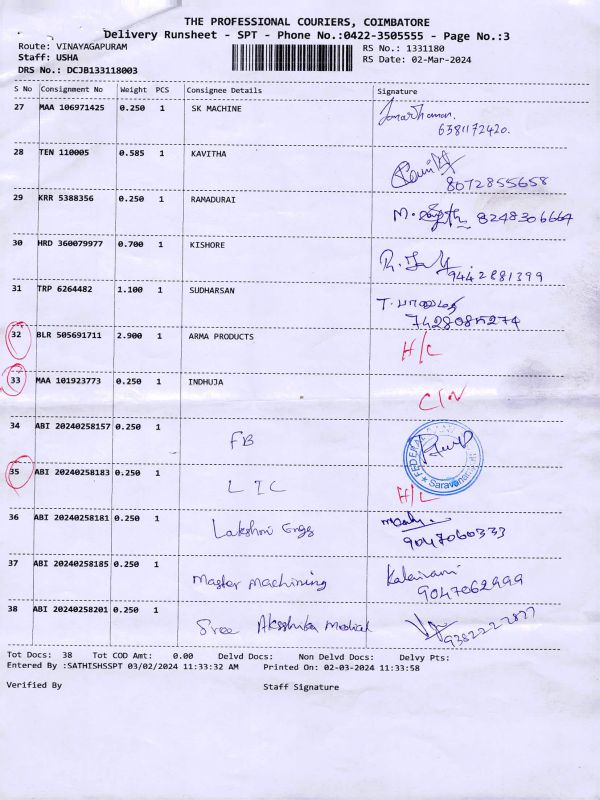 THE PROFESSIONAL COURIERS, COIMBATORE
Delivery Runsheet - SPT - Phone No.:0422-3505555 - Page No.:3
Route: VINAYAGAPURAM RS No.: 1331180
Staff: USHA RS Date: 02-Mar-2024
DRS No.: DCJB133118003
S No Consignment No Weight PCS Consignee Details Signature
27 MAA 106971425 0.250 1 SK MACHINE
6381172420.
28 TEN 110005 0.585 1 KAVITHA
8072855658
29 KRR 5388356 0.250 1 RAMADURAI
M. 8248306664
30 HRD 360079977 0.700 1 KISHORE
9442881399
31 TRP 6264482 1.100 1 SUDHARSAN
T.
7428085274
32 BLR 505691711 2.900 1 ARMA PRODUCTS H/C
33 MAA 101923773 0.250 1 INDHUJA C/N
34 ABI 20240258157 0.250 1 FB
35 ABI 20240258183 0.250 1 LIC H/C
36 ABI 20240258181 0.250 1 Lakshmi Engs
9047060333
37 ABI 20240258185 0.250 1 Master Machining
9047062999
38 ABI 20240258201 0.250 1 Sree Medical
Tot Docs: 38 Tot COD Amt: 0.00 Delvd Docs: Non Delvd Docs: Delvy Pts:
Entered By :SATHISHSSPT 03/02/2024 11:33:32 AM Printed On: 02-03-2024 11:33:58
Verified By Staff Signature